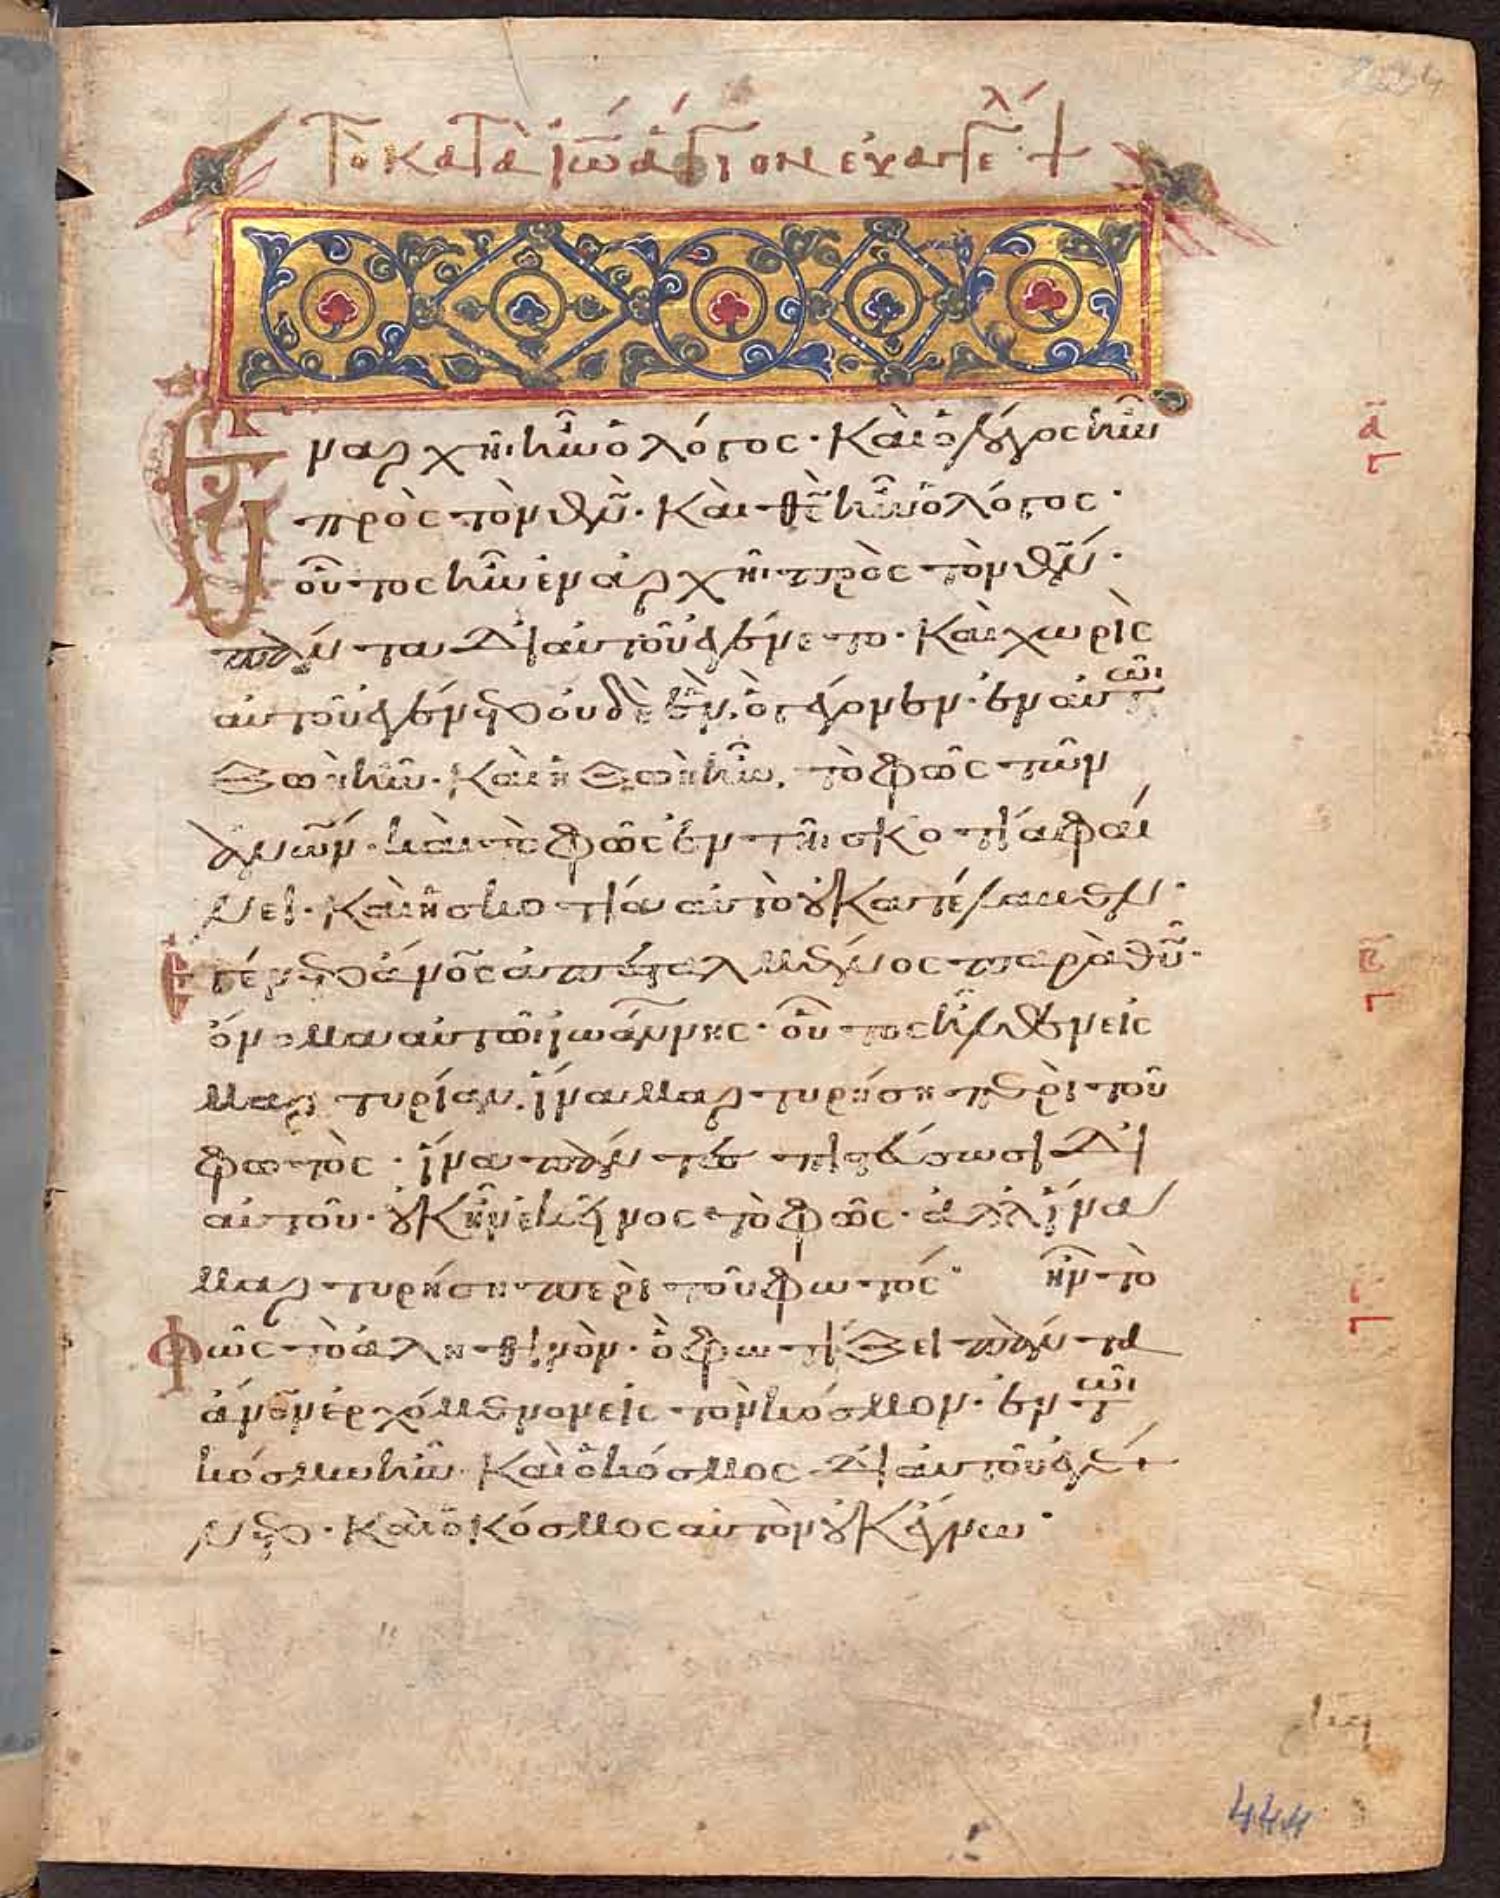 Τὸ κατὰ ἰω̅ά ἅγιον ευαγγελ +
Ἐν ἀρχῆι ἦν ὁ λόγος· καὶ ὁ λόγος ἦν
πρὸς τὸν θν̅· καὶ θς̅ ἦν ὁ λόγος·
οὗτος ἦν ἐν ἀρχῆι πρὸς τὸν θν̅·
πάντα δι αὐτοῦ ἐγένετο· καὶ χωρὶς
αὐτοῦ ἐγένετο οὐδὲ ἕν, ὃ γέγονεν· ἐν αὐτῶι
ζωὴ ἦν· καὶ ἡ ζωὴ ἦν, τὸ φῶς τῶν
ἀνων̅· καὶ τὸ φῶς ἐν τῆι σκοτία φαί
νει· καὶ ἡ σκοτία αὐτὸ οὐ κατέλαβεν·
Ἐγένετο ἄνος̅ ἀπεσταλμένος παρὰ θυ̅·
ὄνομα αὐτῶι ἰωάννης· οὗτος ἦλθεν εἰς
μαρτυρίαν, ἵνα μαρτυρήση περὶ τοῦ
φωτὸς· ἵνα πάντες πιστεύσωσι δι
αὐτοῦ· οὐκ ἦν ἐκεῖνος τὸ φῶς· ἀλλ ἵνα
μαρτυρήση περὶ τοῦ φωτός· ἦν τὸ
Φῶς τὸ ἀληθινὸν· ὃ φωτίζει πάντα
ἄνον̅ ἐρχόμενον εἰς τὸν κόσμον· ἐν τῶι
κόσμω ἦν· καὶ ὁ κόσμος δι αὐτοῦ ἐγέ
νετο· καὶ ὁ κόσμος αὐτὸν οὐκ ἔγνω·
α
γ
β
γ
γ
444